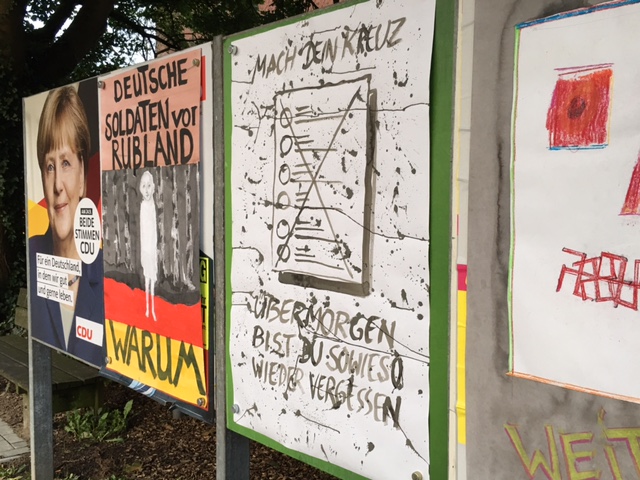 BEIDE
STIMMEN
CDU
Für ein Deutschland,
in dem wir gut
und gerne leben.
CDU
DEUTSCHE
SOLDATEN vor
RUßLAND
WARUM
MACH DEIN KREUZ
ÜBERMORGEN
BIST DU SOWIESO
WIEDER VERGESSEN
WEIT